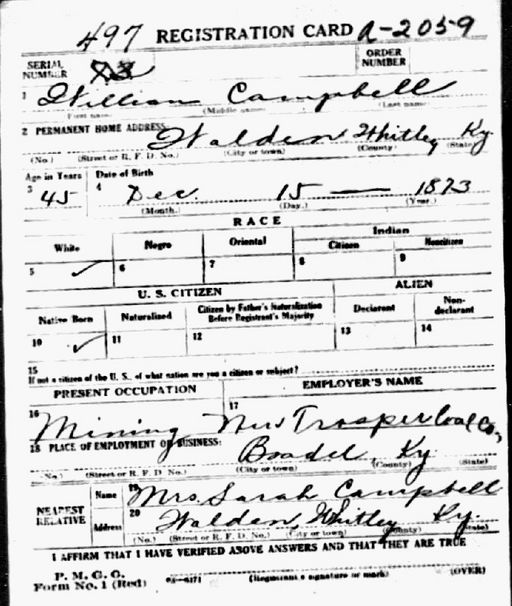 497 REGISTRATION CARD A-2059
SERIAL NUMBER 73 ORDER NUMBER
1 William Campbell
First name (Middle name) Last name
2 PERMANENT HOME ADDRESS: Walden Whitley Ky
(No.) (Street or R. F. D. No.) (City or town) (County) (State)
Age in Years Date of Birth
3 45 4 Dec. 15 — 1873
(Month.) (Day.) (Year.)
RACE
White Negro Oriental Indian
Citizen Noncitizen
5 ✓ 6 7 8 9
U. S. CITIZEN ALIEN
Native Born Naturalized Citizen by Father's Naturalization Before Registrant's Majority Declarant Non-declarant
10 ✓ 11 12 13 14
15
If not a citizen of the U. S., of what nation are you a citizen or subject?
PRESENT OCCUPATION EMPLOYER'S NAME
16 Mining 17 New Trosper Coal Co,
18 PLACE OF EMPLOYMENT OR BUSINESS:
Ky
(No.) (Street or R. F. D. No.) (City or town) (County) (State)
NEAREST RELATIVE Name 19 Mrs. Sarah Campbell
Address 20 Walden, Whitley Ky.
(No.) (Street or R. F. D. No.) (City or town) (County) (State)
I AFFIRM THAT I HAVE VERIFIED ABOVE ANSWERS AND THAT THEY ARE TRUE
P. M. G. O.
Form No. 1 (Red) (Registrant's signature or mark) (OVER)